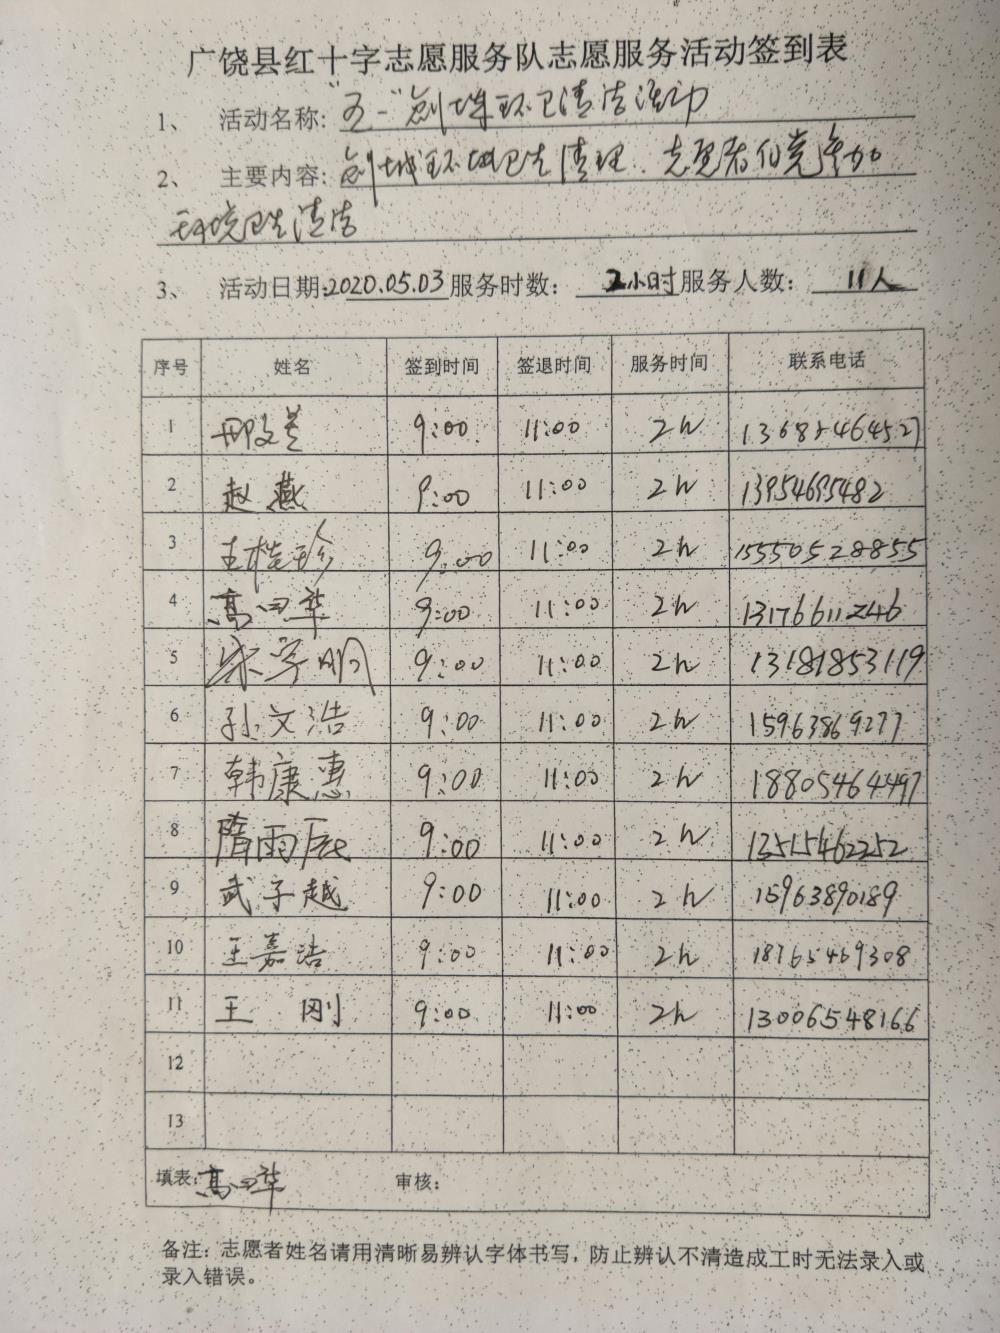 广饶县红十字志愿服务队志愿服务活动签到表
1、 活动名称: "五一"创城环卫清洁活动
2、 主要内容: 创城环城卫生清理、志愿者们参加
环境卫生清洁
3、 活动日期: 2020.05.03 服务时数: 2小时 服务人数: 11人
序号 姓名 签到时间 签退时间 服务时间 联系电话
1 邢文兰 9:00 11:00 2h 13682464527
2 赵燕 9:00 11:00 2h 13954695482
3 王桂珍 9:00 11:00 2h 15550528855
4 高四华 9:00 11:00 2h 13176611246
5 宋宇明 9:00 11:00 2h 13181853119
6 孙文浩 9:00 11:00 2h 15963869277
7 韩康惠 9:00 11:00 2h 18805464497
8 隋雨辰 9:00 11:00 2h 13515462252
9 武子越 9:00 11:00 2h 15963890189
10 王嘉浩 9:00 11:00 2h 18765469308
11 王刚 9:00 11:00 2h 13006548166
12
13
填表: 高四华 审核:
备注: 志愿者姓名请用清晰易辨认字体书写，防止辨认不清造成工时无法录入或
录入错误。